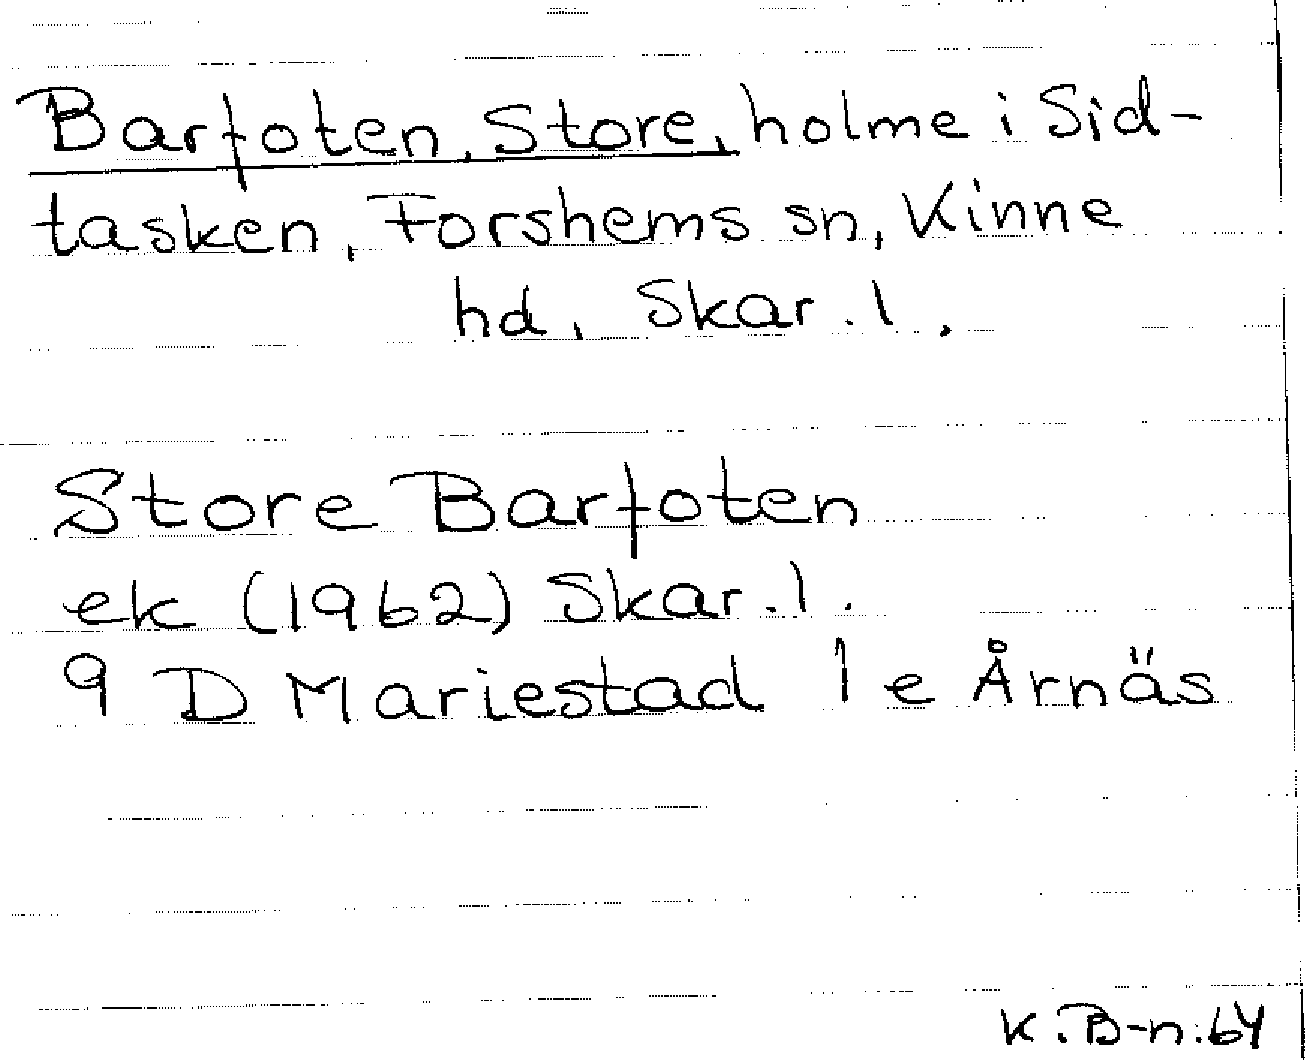 Barfoten, Store, holme i Sid-
tasken, Forshems sn, Kinne
hd, Skar. l.
Store Barfoten
ek (1962) Skar. l.
9 D Mariestad 1 e Årnäs
K. B-n. 64